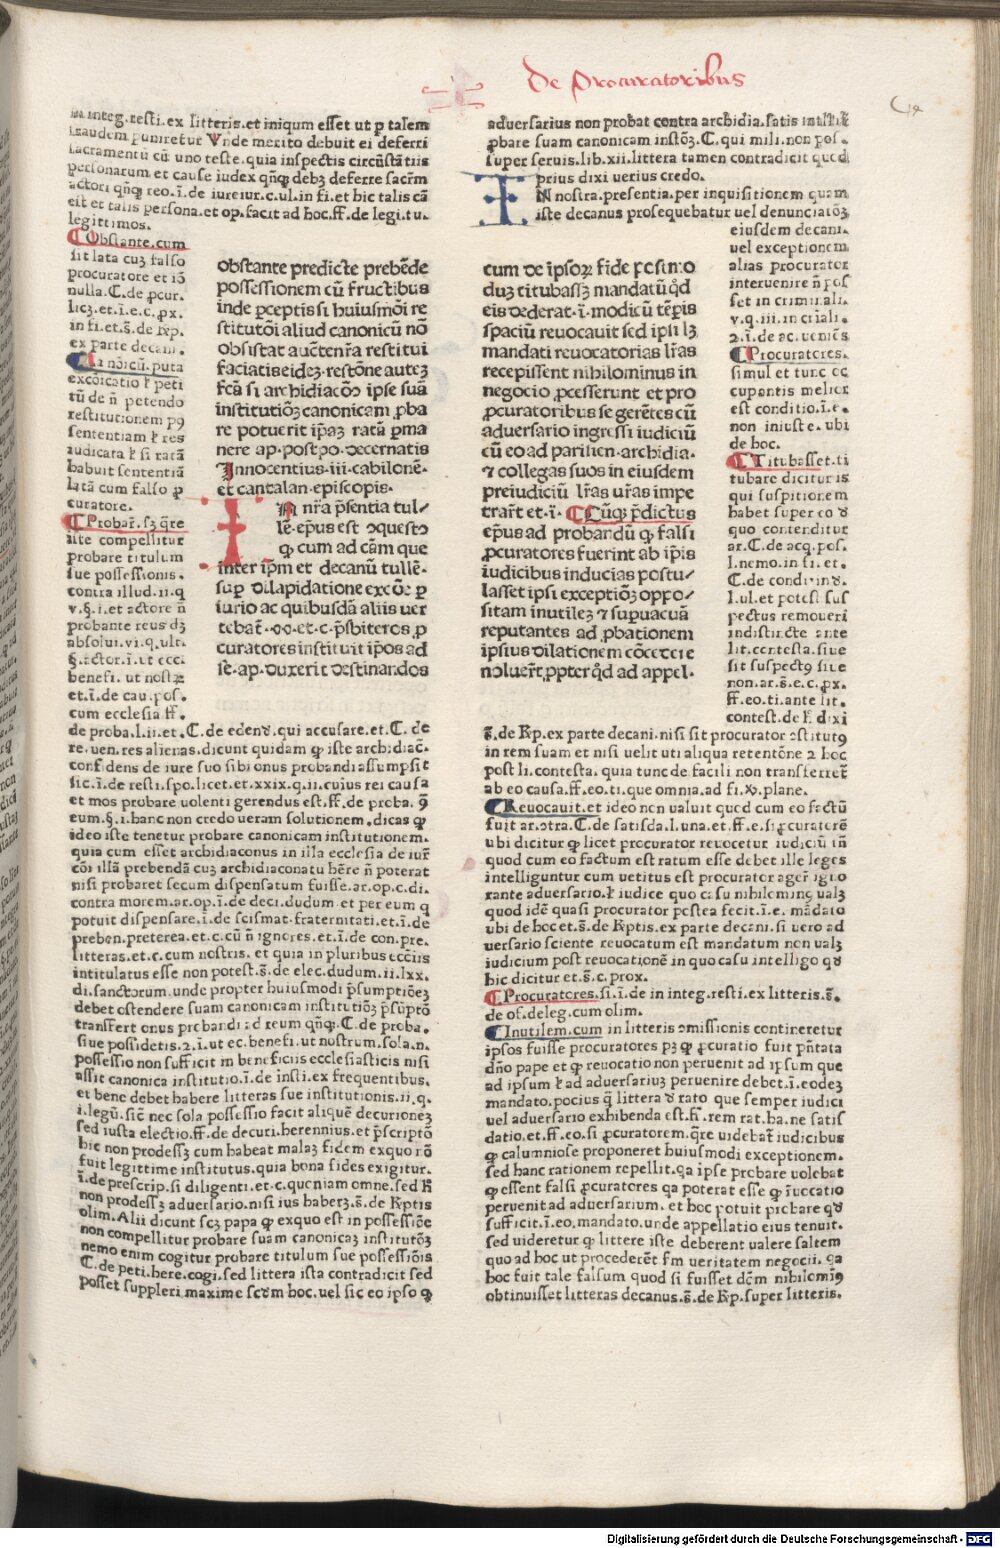 De Procuratoribus
in integ.resti.ex litteris.et iniqum esset ut p talem
fraudem puniretur Vnde merito debuit ei deferri
sacramentū cū uno teste.quia inspectis circūstātiis
personarum et cause iudex qñqꝫ debꝫ deferre sacrm̄
actori qñqꝫ reo.ī.de iureiur.c.ul.in fi.et hic talis cā
est et talis persona.et op.facit ad hoc.ff.de legi.tu.
legittimos.
Obstante.cum
sit lata cuꝫ falso
procuratore et iō
nulla.C.de ꝓcur.
licꝫ.et.ī.e.c.ꝓx.
in fi.et.s̄.de Rp.
ex parte decani.
Canōicū.puta
excōicatio ł peti
tū de ñ petendo
restitutionem pꝯ
sententiam ł res
iudicata ł si ratā
habuit sententiā
latā cum falso ꝓ
curatore.
Probar̄.sꝫ q̄re
iste compellitur
probare titulum
sue possessionis.
contra illud.ii.q
v.§.i.et actore ñ
probante reus dꝫ
absolui.vi.q.ult.
§.actor.ī.ut ecc.
benefi.ut nostꝝ
et.ī.de cau.pos.
cum ecclesia.ff.
de proba.l.ii.et.C.de edendꝰ.qui accusare.et.C.de
re.uen.res alienas.dicunt quidam ꝙ iste archidiac̄.
confidens de iure suo sibi onus probandi assumpsit
sic.ī.de resti.spo.licet.et.xxix.q.ii.cuius rei causa
et mos probare uolenti gerendus est.ff.de proba.ꝯ
eum.§.i.hanc non credo ueram solutionem.dicas ꝙ
ideo iste tenetur probare canonicam institutionem.
quia cum esset archidiaconus in illa ecclesia de iur̄
cōi illā prebendā cuꝫ archidiaconatu hēre ñ poterat
nisi probaret secum dispensatum fuisse.ar.op.c.di.
contra morem.ar.op.ī.de deci.dudum.et per eum q
potuit dispensare.ī.de scismat.fraternitati.et.ī.de
preben.preterea.et.c.cū ñ ignores.et.ī.de con.pre.
litteras.et.c.cum nostris.et quia in pluribus ecc̄iis
intitulatus esse non potest.s̄.de elec.dudum.ii.lxx.
di.sanctorum.unde propter huiusmodi p̄sumptiōeꝫ
debet ostendere suam canonicam institutiōꝫ p̄suptō
transfert onus probandi in reum qñqꝫ.C.de proba.
siue possidetis.2.ī.ut ec.benefi.ut nostrum.sola.n.
possessio non sufficit in beneficiis ecclesiasticis nisi
assit canonica institutio.ī.de insti.ex frequentibus.
et bene debet habere litteras sue institutionis.ii.q.
i.legū.sic̄ nec sola possessio facit aliquē decurioneꝫ
sed iusta electio.ff.de decuri.herennius.et p̄scriptō
hic non prodessꝫ cum habeat malaꝫ fidem exquo nō
fuit legittime institutus.quia bona fides exigitur.
ī.de prescrip.si diligenti.et.c.quoniam omne.sed ł
non prodessꝫ aduersario.nisi ius haberꝫ.s̄.de Rp̄tis
olim.Alii dicunt scꝫ papa ꝙ exquo est in possessiōe
non compellitur probare suam canonicaꝫ institutōꝫ
nemo enim cogitur probare titulum sue possessiōis
C.de peti.here.cogi.sed littera ista contradicit sed
posset suppleri.maxime scdm hoc.uel sic eo ipso ꝙ
obstante predicte prebēde
possessionem cū fructibus
inde ꝑceptis si huiusmōi re
stitutōi aliud canonicū nō
obsistat auctenr̄a restitui
faciatis eideꝫ.restōne auteꝫ
fcā si archidiacōꝰ ipse suā
institutiōꝫ canonicam ꝓba
re potuerit ip̄aꝫ ratā ꝑma
nere ap.postpo.decernatis
Innocentius.iii.cabilonē.
et cantalan.episcopis.
In nr̄a p̄sentia tul⸗
lē.ep̄us est ↄquestꝰ
ꝙ cum ad cām que
inter ip̄m et decanū tullē.
sup dilapidatione excōe p
iurio ac quibusdā aliis uer
tebat̄.oo.et.c.p̄sbiteros ꝓ
curatores instituit ip̄os ad
sē.ap.duxerit destinandos
aduersarius non probat contra archidia.satis intelligit̄
ꝓbare suam canonicam instōꝫ.C.qui mili.non pos.
super seruis.lib.xii.littera tamen contradicit quod
prius dixi uerius credo.
IN nostra.presentia.per inquisitionem quam
iste decanus prosequebatur uel denunciatōꝫ
eiusdem decani.
uel exceptionem
alias procurator
interuenire ñ pos
set in criminali.
v.q.iii.in criali.
2.ī.de ac.ueniēs
Procuratores.
simul et tunc oc
cupantis melior
est conditio.ī.e.
non iniuste.ubi
de hoc.
Titubasset.ti
tubare dicitur is
qui suspitionem
habet super eo ꝺ
quo contenditur
ar.C.de acq.pos.
l.nemo.in fi.et.
C.de condi.inꝺ.
l.ul.et potest sus
pectus remoueri
indistincte ante
lit.contesta.siue
sit suspectꝯ siue
non.ar.s̄.e.c.ꝓx.
ff.eo.ti.ante lit.
contest.de ł dixi
cum de ipsoꝝ fide ꝑsino
duꝫ titubassꝫ mandatū qd̄
eis dederat.ī.modicū tēpis
spaciū reuocauit sed ipsi lꝫ
mandati reuocatorias lr̄as
recepissent nihilominus in
negocio ꝓcesserunt et pro
ꝓcuratoribus se gerētes cū
aduersario ingressi iudiciū
cū eo ad parisien.archidia.
⁊ collegas suos in eiusdem
preiudiciū lr̄as ur̄as impe
trar̄t et.ī. Cūqꝫ p̄dictus
ep̄us ad probandū ꝙ falsi
ꝓcuratores fuerint ab ip̄is
iudicibus inducias postu⸗
lasset ipsi exceptiōꝫ oppo⸗
sitam inutileꝫ ⁊ supuacuā
reputantes ad ꝓbationem
ipsius dilationem cōcedere
noluer̄t ꝓpter qd̄ ad appel.
s̄.de Rp.ex parte decani.nisi sit procurator ↄstitutꝯ
in rem suam et nisi uelit uti aliqua retentōne 2 hoc
post li.contesta.quia tunc de facili non transferret̄
ab eo causa.ff.eo.ti.que omnia.ad fi.xꝰ.plane.
Reuocauit.et ideo non ualuit quod cum eo factū
fuit ar.ↄtra.C.de satisda.l.una.et.ff.e.si ꝓcuratorē
ubi dicitur ꝙ licet procurator reuocetur iudiciū tn̄
quod cum eo factum est ratum esse debet ille leges
intelliguntur cum uetitus est procurator ager̄ igno
rante aduersario.ł iudice quo casu nihilominꝯ ualꝫ
quod idē quasi procurator postea fecit.ī.e.mādato
ubi de hoc et.s̄.de Rp̄tis.ex parte decani.si uero ad
uersario sciente reuocatum est mandatum non ualꝫ
iudicium post reuocationē in quo casu intelligo qꝺ
hic dicitur et.s̄.c.prox.
Procuratores.si.ī.de in integ.resti.ex litteris.s̄.
de of.deleg.cum olim.
Inutilem.cum in litteris ↄmissionis contineretur
ipsos fuisse procuratores pꝫ ꝙ ꝓcuratio fuit pn̄tata
dn̄o pape et ꝙ reuocatio non peruenit ad ipsum que
ad ipsum ł ad aduersariuꝫ peruenire debet.ī.eodeꝫ
mandato.pocius q̄ littera ꝺ rato que semper iudici
uel aduersario exhibenda est.ff.rem rat.ha.ne satis
datio.et.ff.eo.si ꝓcuratorem.q̄re uidebat̄ iudicibus
ꝙ calumniose proponeret huiusmodi exceptionem.
sed hanc rationem repellit.qa ipse probare uolebat
ꝙ essent falsi ꝓcuratores qa poterat esse ꝙ r̄uocatio
peruenit ad aduersarium.et hoc potuit probare qꝺ
sufficit.ī.eo.mandato.unde appellatio eius tenuit.
sed uideretur ꝙ littere iste deberent ualere saltem
quo ad hoc ut procederēt scdm ueritatem negocii.qa
hoc fuit tale falsum quod si fuisset dc̄m nihilominꝯ
obtinuisset litteras decanus.s̄.de Rp.super litteris.
Digitalisierung gefördert durch die Deutsche Forschungsgemeinschaft - DFG